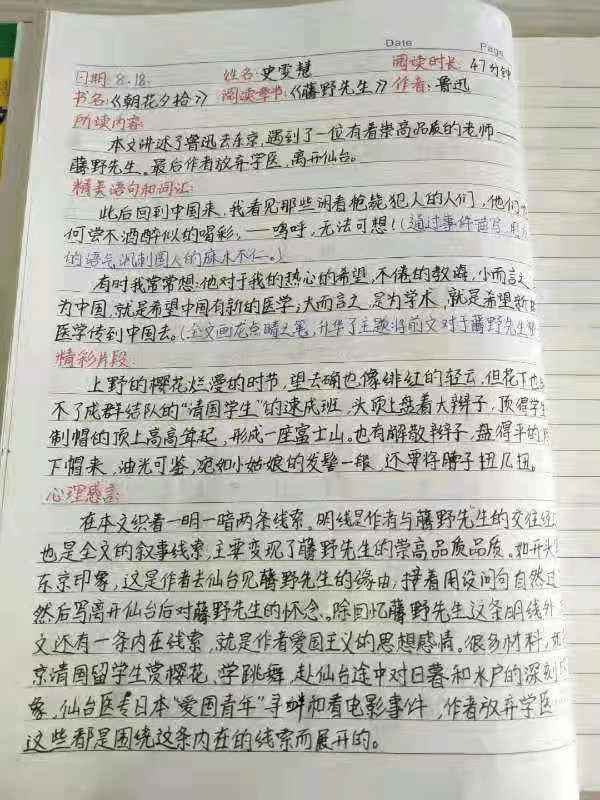 Date
Page
日期: 8.18. 姓名: 史雯慧 阅读时长: 47分钟
书名:《朝花夕拾》 阅读章节:《藤野先生》 作者: 鲁迅
所读内容:
本文讲述了鲁迅去东京,遇到了一位有着崇高品质的老师——
藤野先生。最后作者放弃学医,离开仙台。
精美语句和词汇:
此后回到中国来,我看见那些闲看枪毙犯人的人们,他们
何尝不酒醉似的喝彩,——呜呼,无法可想!(通过事件描写,用
的语气讽刺国人的麻木不仁。)
有时我常常想:他对于我的热心的希望,不倦的教诲,小而言之
为中国,就是希望中国有新的医学;大而言之,是为学术,就是希望新
医学传到中国去。(全文画龙点睛之笔,升华了主题,将前文对于藤野先生
精彩片段:
上野的樱花烂漫的时节,望去确也像绯红的轻云,但花下也
不了成群结队的“清国学生”的速成班,头顶上盘着大辫子,顶得学生
制帽的顶上高高耸起,形成一座富士山。也有解散辫子,盘得平的,
下帽来,油光可鉴,宛如小姑娘的发髻一般,还要将脖子扭几扭。
心理感言:
在本文织着一明一暗两条线索。明线是作者与藤野先生的交往经
也是全文的叙事线索,主要变现了藤野先生的崇高品质品质。和开头
东京印象,这是作者去仙台见藤野先生的缘由,接着用设问句自然过
然后写离开仙台后对藤野先生的怀念。除回忆藤野先生这条明线外
文还有一条内在线索,就是作者爱国主义的思想感情。很多材料,如
京清国留学生赏樱花、学跳舞,赴仙台途中对日暮和水户的深刻
象,仙台医专日本“爱国青年”寻衅和看电影事件,作者放弃学医……
这些都是围绕这条内在的线索而展开的。